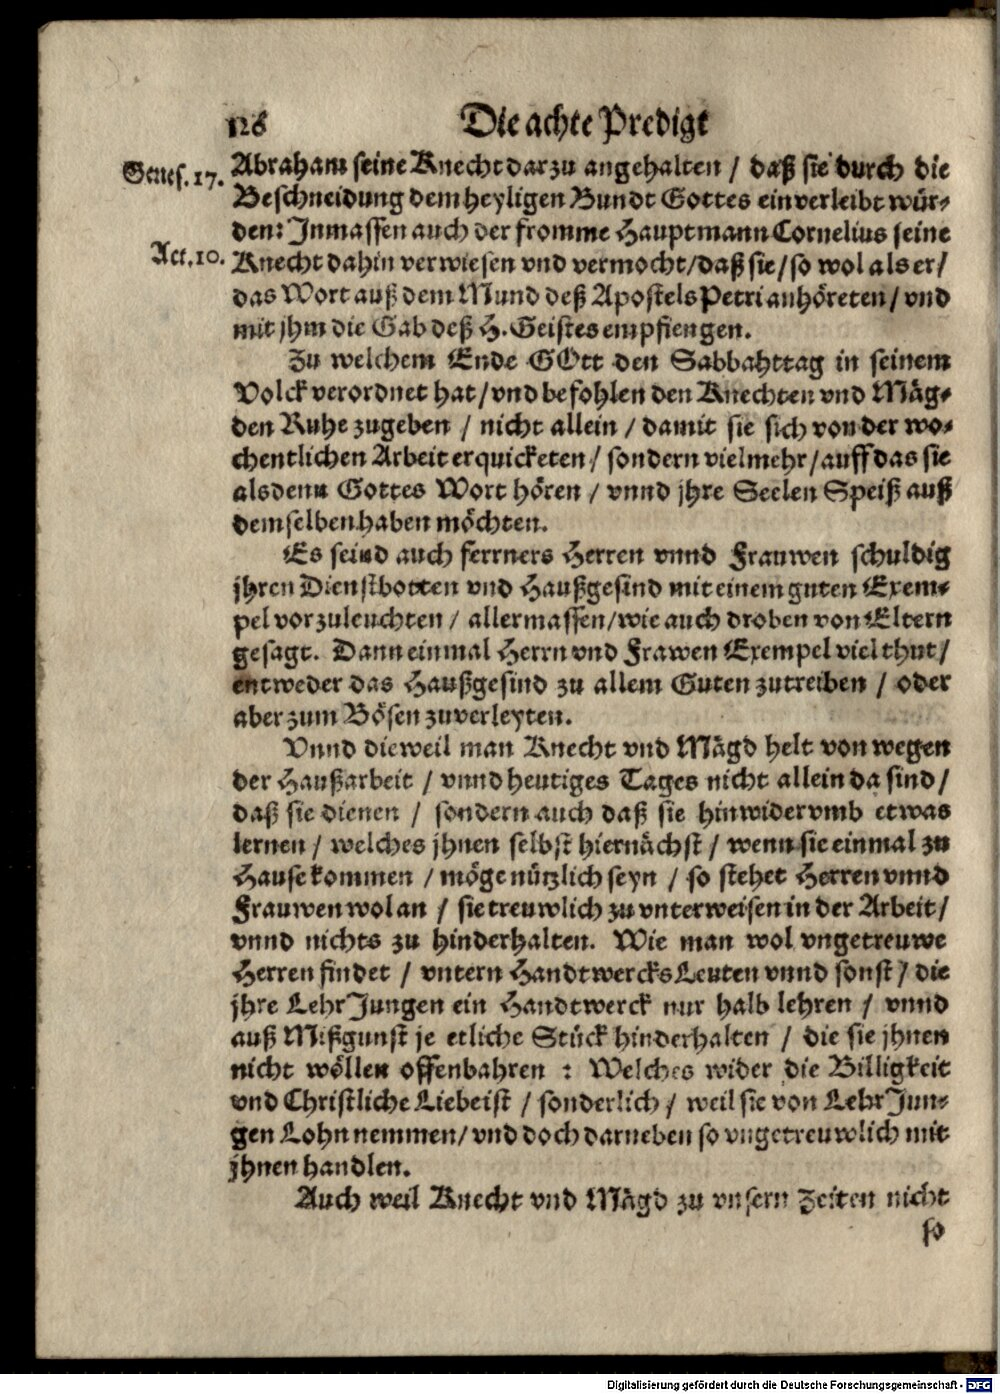 126 Die achte Predigt
Genes. 17. Abraham seine Knecht darzu angehalten / daß sie durch die
Beschneidung dem heyligen Bundt Gottes einverleibt wür-
den: Inmassen auch der fromme Hauptmann Cornelius seine
Act. 10. Knecht dahin verwiesen vnd vermocht/daß sie/so wol als er/
das Wort auß dem Mund deß Apostels Petri anhöreten/vnd
mit jhm die Gab deß H. Geistes empfiengen.
Zu welchem Ende GOtt den Sabbahttag in seinem
Volck verordnet hat/vnd befohlen den Knechten vnd Mäg-
den Ruhe zugeben / nicht allein / damit sie sich von der wo-
chentlichen Arbeit erquicketen/ sondern vielmehr/auff das sie
alsdenn Gottes Wort hören / vnnd jhre Seelen Speiß auß
demselben haben möchten.
Es seind auch ferrners Herren vnnd Frauwen schuldig
jhren Dienstbotten vnd Haußgesind mit einem guten Exem-
pel vorzuleuchten/ allermassen/wie auch droben von Eltern
gesagt. Dann einmal Herrn vnd Frawen Exempel viel thut/
entweder das Haußgesind zu allem Guten zutreiben / oder
aber zum Bösen zuverleyten.
Vnnd dieweil man Knecht vnd Mägd helt von wegen
der Haußarbeit / vnnd heutiges Tages nicht allein da sind/
daß sie dienen / sondern auch daß sie hinwidervmb etwas
lernen / welches jhnen selbst hiernächst / wenn sie einmal zu
Hause kommen / möge nützlich seyn / so stehet Herren vnnd
Frauwen wol an / sie treuwlich zu vnterweisen in der Arbeit/
vnnd nichts zu hinderhalten. Wie man wol vngetreuwe
Herren findet / vntern Handtwercks Leuten vnnd sonst / die
jhre Lehr Jungen ein Handtwerck nur halb lehren / vnnd
auß Mißgunst je etliche Stück hinderhalten / die sie jhnen
nicht wöllen offenbahren : Welches wider die Billigkeit
vnd Christliche Liebe ist / sonderlich / weil sie von Lehr Jun-
gen Lohn nemmen/vnd doch darneben so vngetreuwlich mit
jhnen handlen.
Auch weil Knecht vnd Mägd zu vnsern Zeiten nicht
so
Digitalisierung gefördert durch die Deutsche Forschungsgemeinschaft - DFG